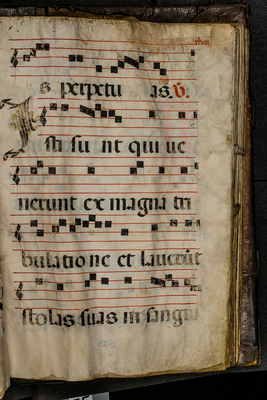 s perpetu as. v.
Isti su nt qui ue
nerunt ex magna tri
bulatione et lauerūt
stolas suas in sangui